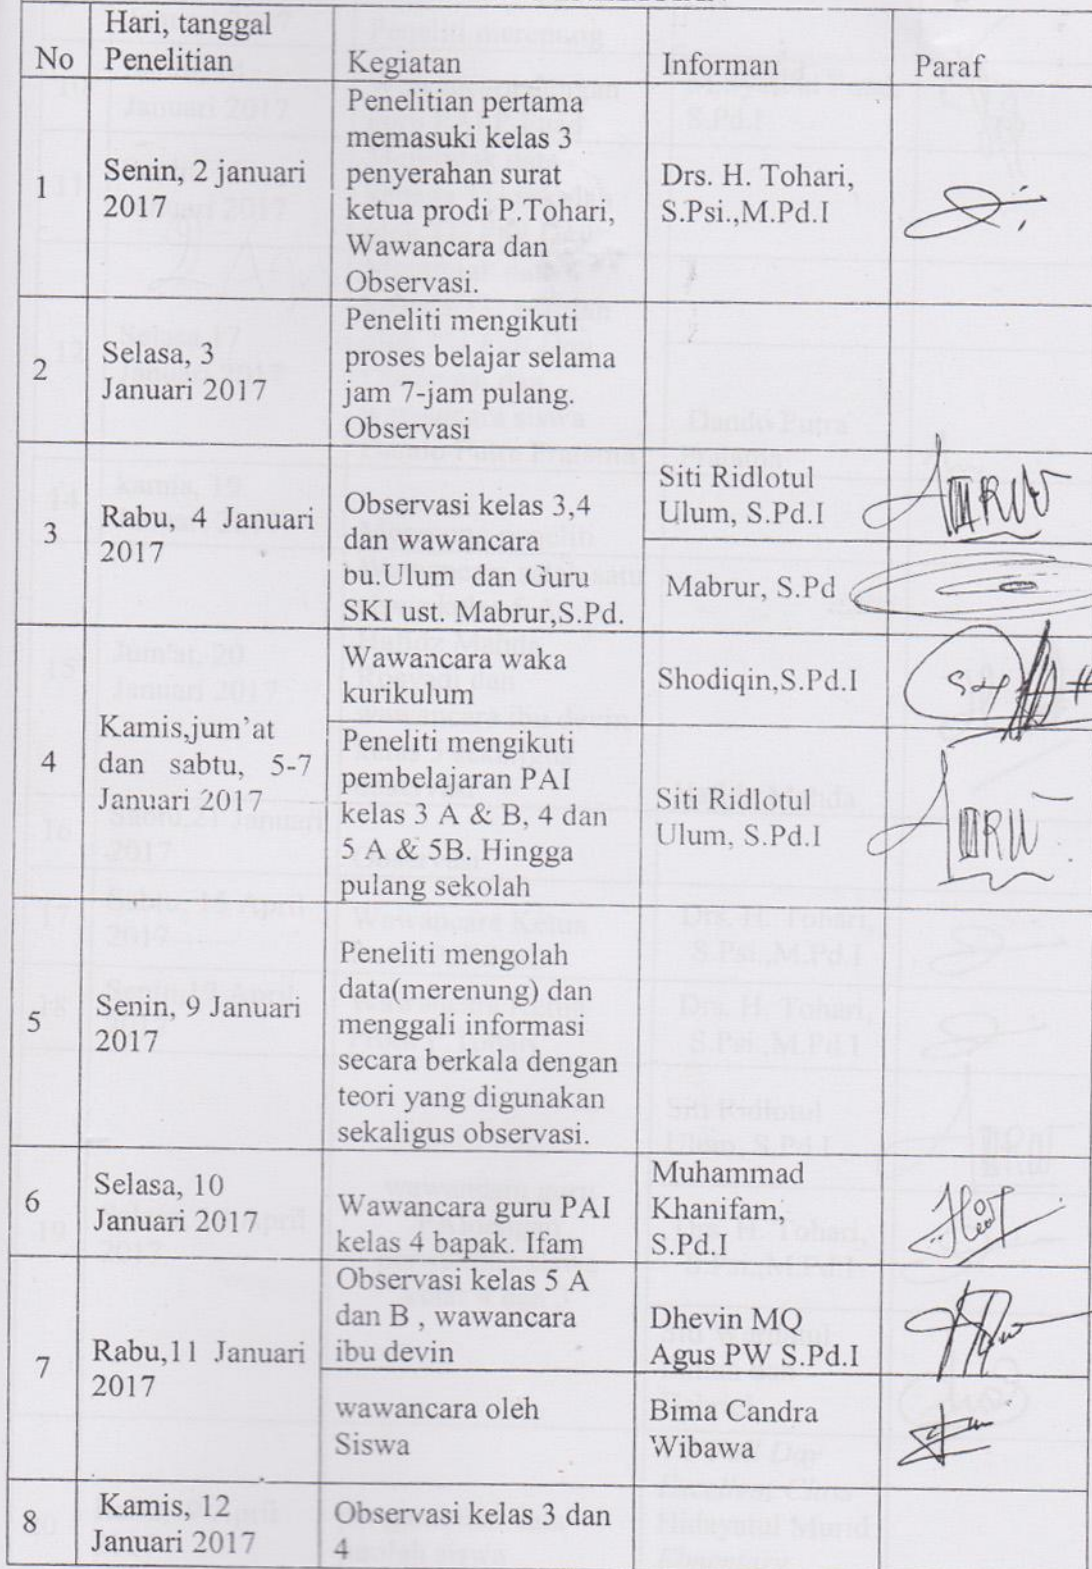 No
Hari, tanggal
Penelitian
Kegiatan
Informan
Paraf
1
Senin, 2 januari
2017
Penelitian pertama
memasuki kelas 3
penyerahan surat
ketua prodi P.Tohari,
Wawancara dan
Observasi.
Drs. H. Tohari,
S.Psi.,M.Pd.I
2
Selasa, 3
Januari 2017
Peneliti mengikuti
proses belajar selama
jam 7-jam pulang.
Observasi
3
Rabu, 4 Januari
2017
Observasi kelas 3,4
dan wawancara
bu.Ulum dan Guru
SKI ust. Mabrur,S.Pd.
Siti Ridlotul
Ulum, S.Pd.I
Mabrur, S.Pd
4
Kamis,jum'at
dan sabtu, 5-7
Januari 2017
Wawancara waka
kurikulum
Shodiqin,S.Pd.I
Peneliti mengikuti
pembelajaran PAI
kelas 3 A & B, 4 dan
5 A & 5B. Hingga
pulang sekolah
Siti Ridlotul
Ulum, S.Pd.I
5
Senin, 9 Januari
2017
Peneliti mengolah
data(merenung) dan
menggali informasi
secara berkala dengan
teori yang digunakan
sekaligus observasi.
6
Selasa, 10
Januari 2017
Wawancara guru PAI
kelas 4 bapak. Ifam
Muhammad
Khanifam,
S.Pd.I
7
Rabu,11 Januari
2017
Observasi kelas 5 A
dan B , wawancara
ibu devin
Dhevin MQ
Agus PW S.Pd.I
wawancara oleh
Siswa
Bima Candra
Wibawa
8
Kamis, 12
Januari 2017
Observasi kelas 3 dan
4